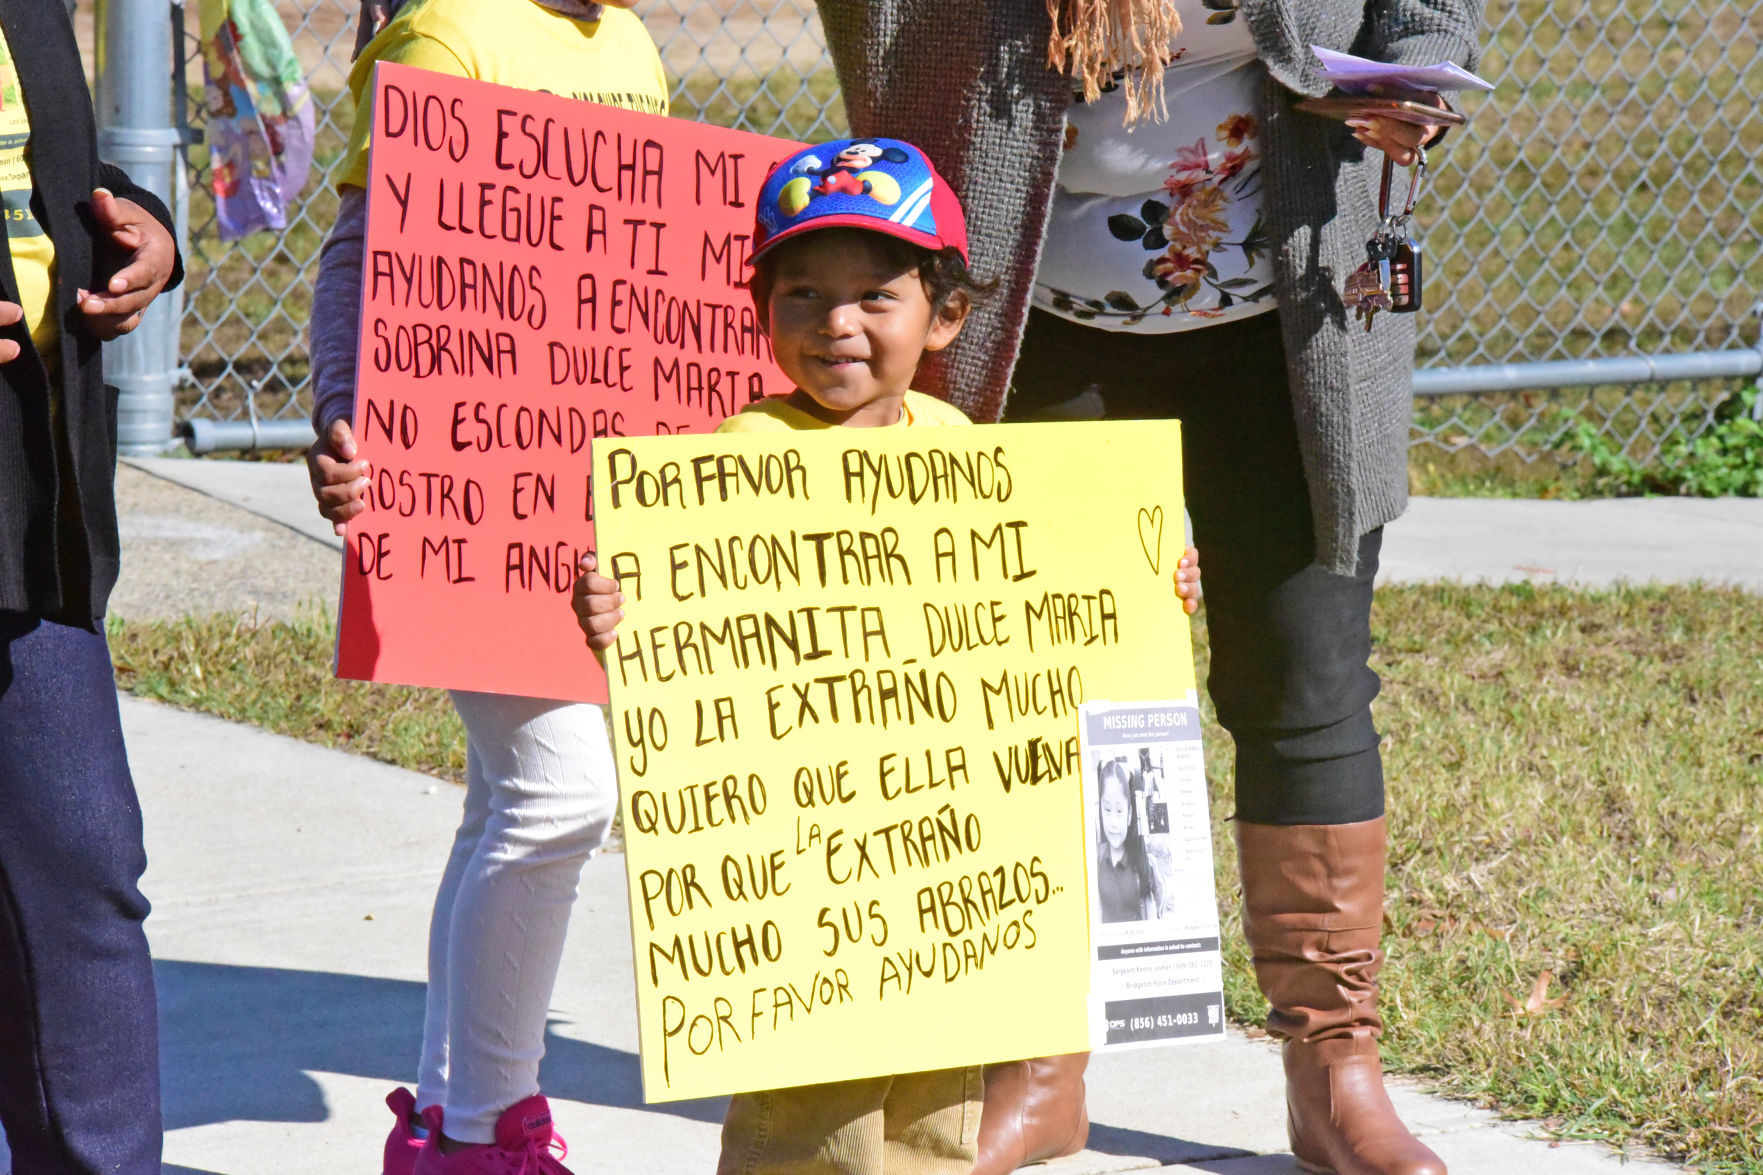 DIOS ESCUCHA MI
Y LLEGUE A TI MI
AYUDANOS A ENCONTRAR
SOBRINA DULCE MARIA
NO ESCONDAS
ROSTRO EN
DE MI
POR FAVOR AYUDANOS
A ENCONTRAR A MI
HERMANITA DULCE MARIA
YO LA EXTRAÑO MUCHO
QUIERO QUE ELLA VUELVA
POR QUE LA EXTRAÑO
MUCHO SUS ABRAZOS...
POR FAVOR AYUDANOS
MISSING PERSON
Have you seen this person?
DULCE MARIA
Anyone with information is asked to contact:
Bridgeton Police Department
(856) 451-0033
adidas
451